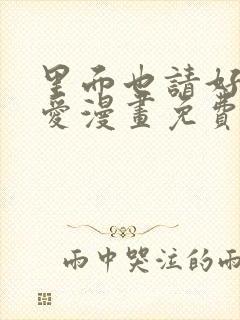 里面也請好
愛漫畫免費
雨中哭注的雨